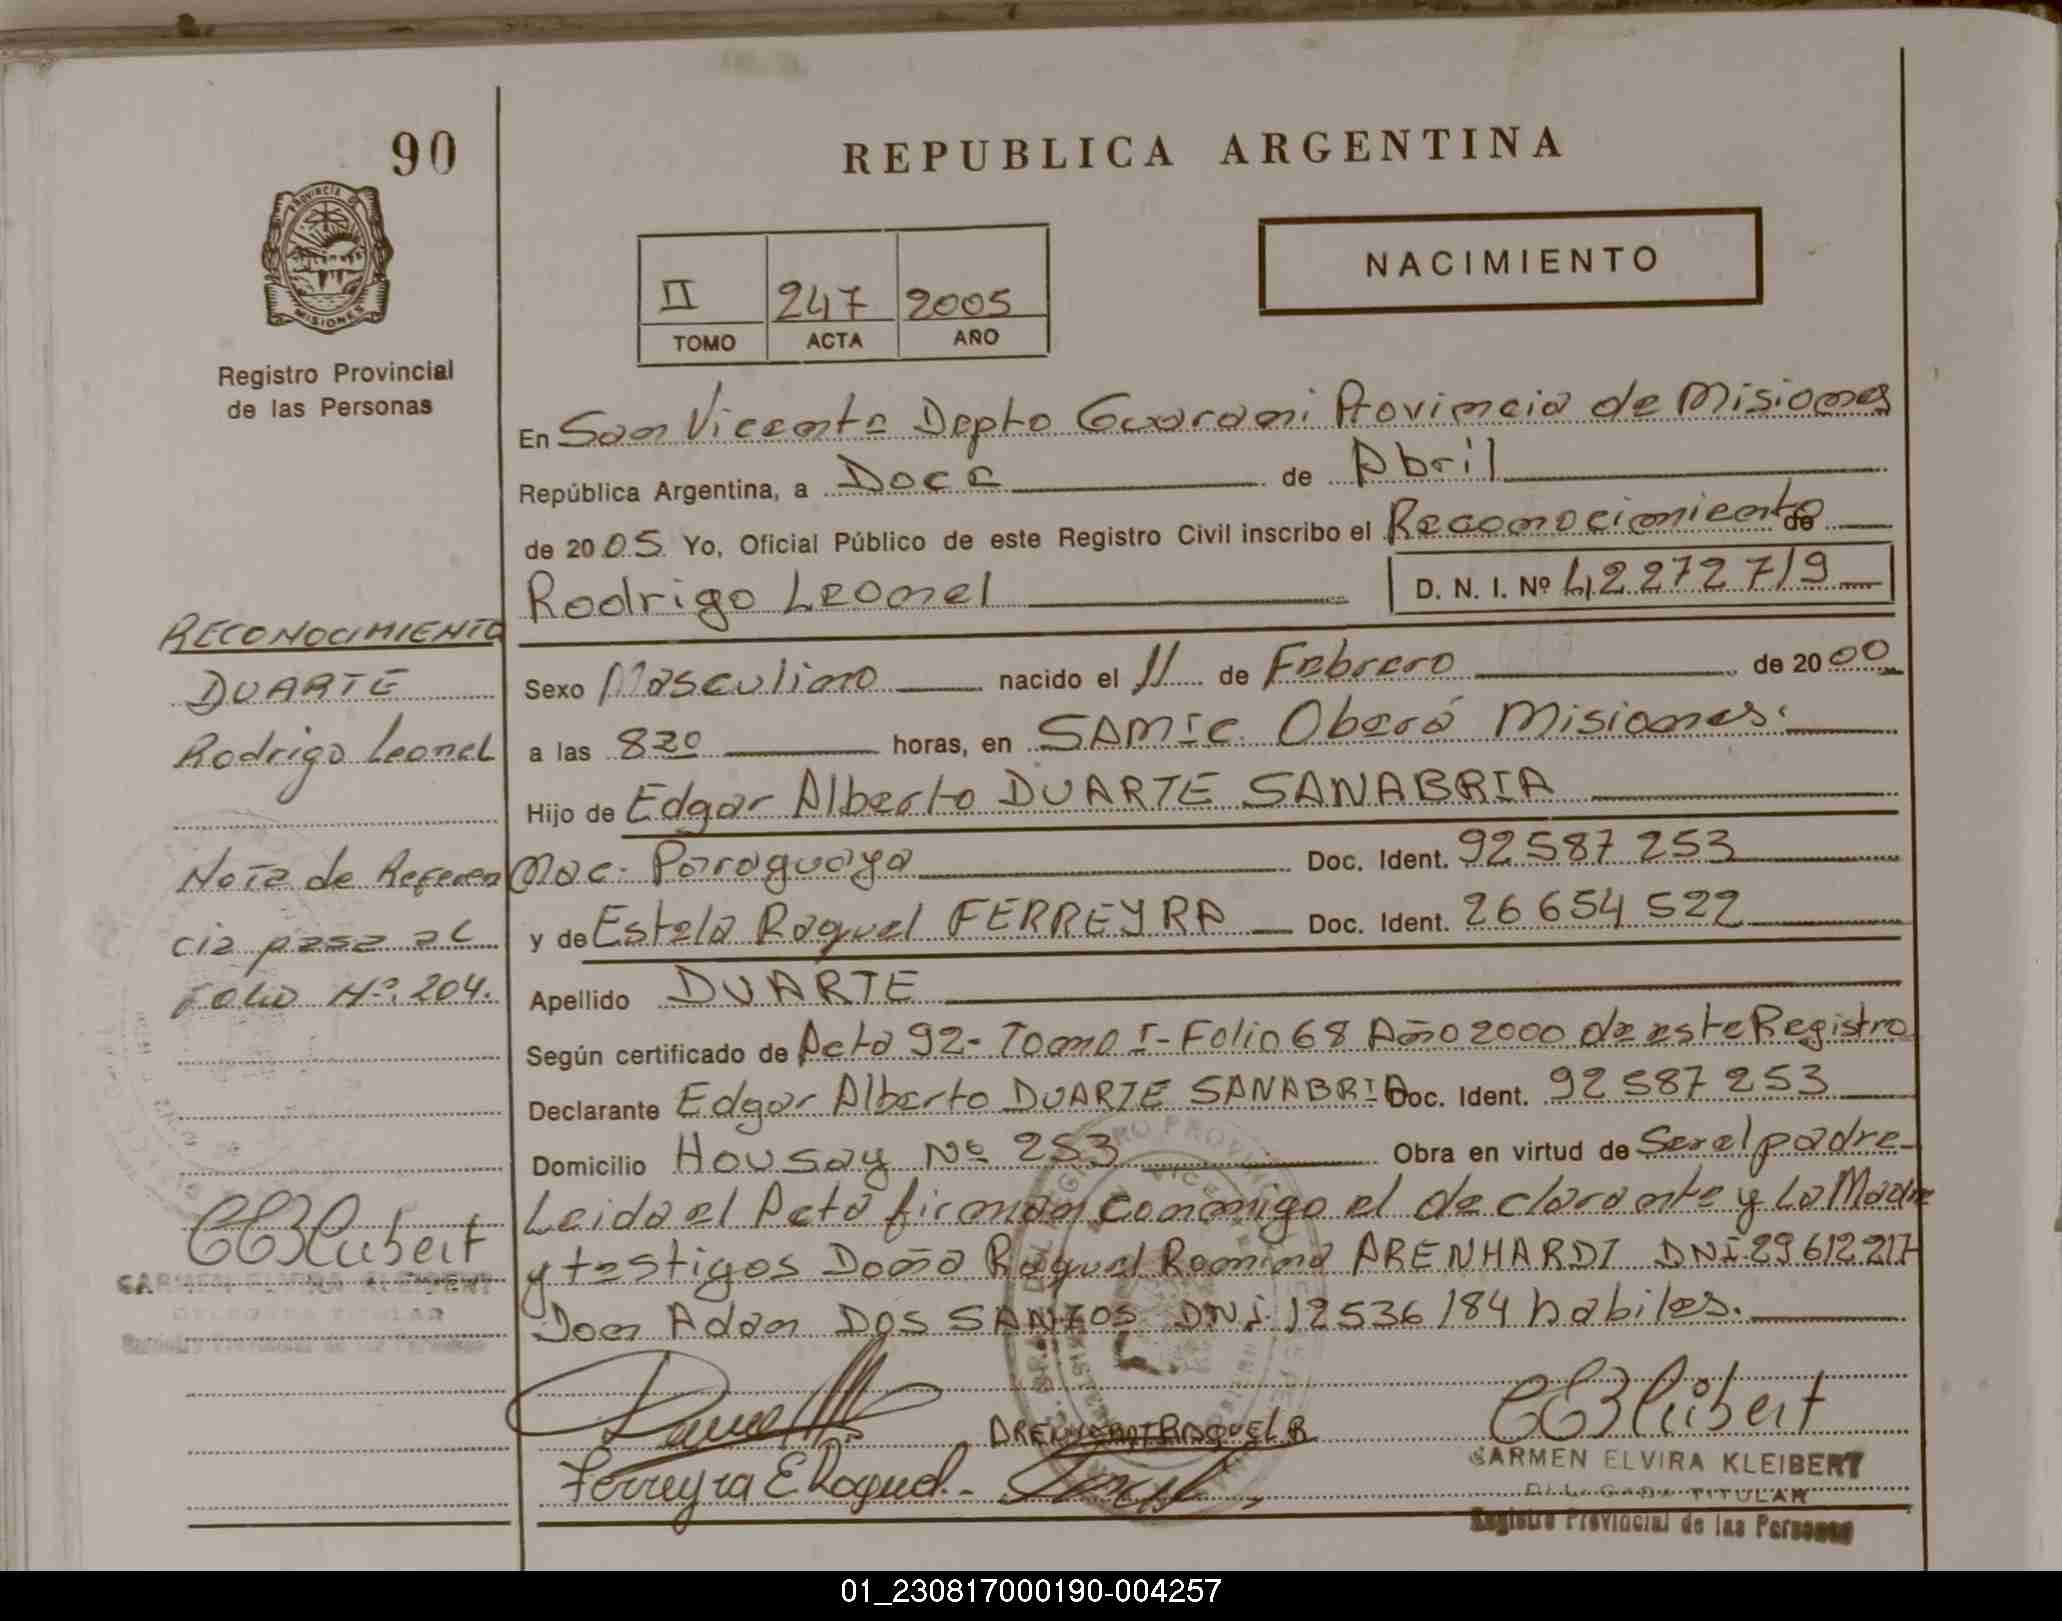 90
REPUBLICA ARGENTINA
PROVINCIA D
MISIONES
NACIMIENTO
II 247 2005
TOMO ACTA AÑO
Registro Provincial
de las Personas
En San Vicente Depto Guarani Provincia de Misiones
República Argentina, a Doce de Abril
de 2005 Yo, Oficial Público de este Registro Civil inscribo el Reconocimiento de
Rodrigo Leonel D. N. I. Nº 42272719
Sexo Masculino nacido el 11 de Febrero de 2000
a las 820 horas, en SAMIC. Oberá Misiones.
Hijo de Edgar Alberto DUARTE SANABRIA
Nac. Paraguaya Doc. Ident. 92587253
y de Estela Raquel FERREYRA Doc. Ident. 26654522
Apellido DUARTE
Según certificado de Acta 92- Tomo I- Folio 68 Año 2000 de este Registro
Declarante Edgar Alberto DUARTE SANABRIA Doc. Ident. 92587253
Domicilio Housay Nº 253 Obra en virtud de Ser el padre-
Leida el Acta firman conmigo el declarante y La Madre
y testigos Doña Raquel Romina ARENHARDT DNI 29612217
Don Adan DOS SANTOS DNI 12536184 habiles.
RECONOCIMIENTO
DUARTE
Rodrigo Leonel
Nota de Referen
cia pasa al
Folio Nº 204.
CARMEN ELVIRA KLEIBERT
DELEGADA TITULAR
Registro Provincial de las Personas
ARENHARDT RAQUEL R
Ferreyra E Raquel.-
CARMEN ELVIRA KLEIBERT
DELEGADA TITULAR
Registro Provincial de las Personas
01_230817000190-004257